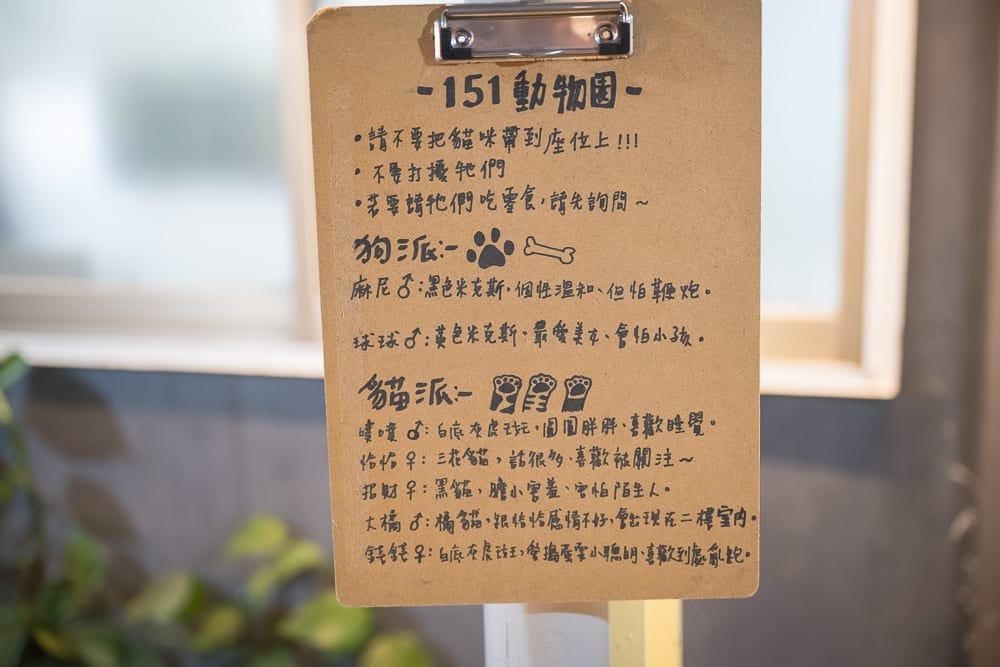 -151動物園-
•請不要把貓咪帶到座位上!!!
•不要打擾牠們
•若要請牠們吃零食,請先詢問~
狗派:-
麻尼♂:黑色米克斯,個性溫和、但怕鞭炮。
球球♂:黃色米克斯、最愛美女、會怕小孩。
貓派:-
噗噗♂:白底灰虎斑,圓圓胖胖、喜歡睡覺。
恰恰♀:三花貓,話很多、喜歡被關注~
招財♀:黑貓,膽小害羞、害怕陌生人。
大橘♂:橘貓,跟恰恰感情不好,會出現在二樓室內。
錢錢♀:白底灰虎斑,愛搗蛋耍小聰明、喜歡到處亂跑。